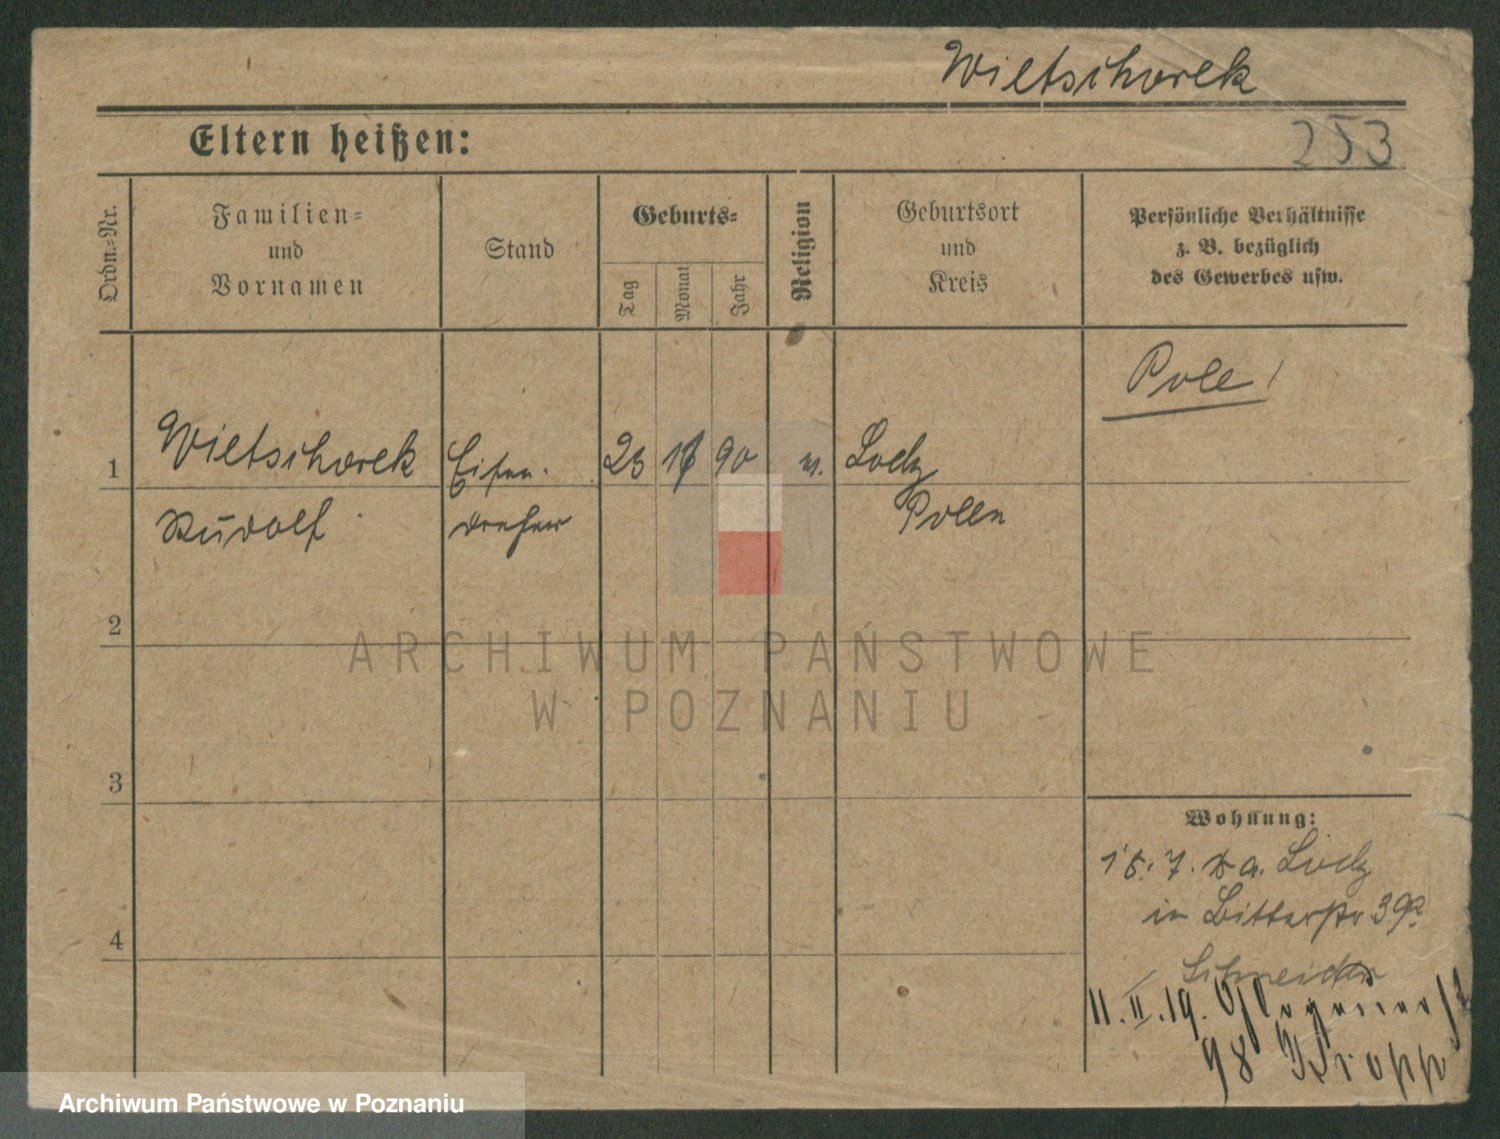 Wietschorek
Eltern heißen:
253
Ordn.=Nr.
Familien=
und
Vornamen
Stand
Geburts=
Tag
Monat
Jahr
Religion
Geburtsort
und
Kreis
Persönliche Verhältnisse
z. B. bezüglich
des Gewerbes usw.
Pole!
1
Wietschorek
Rudolf
Eisen-
dreher
23
90
Lodz
Polen
2
3
4
Wohnung:
a. Lodz
in Bitterstr 39
Schneider
11. II. 19.
98 Kropp
ARCHIWUM PAŃSTWOWE
W POZNANIU
Archiwum Państwowe w Poznaniu